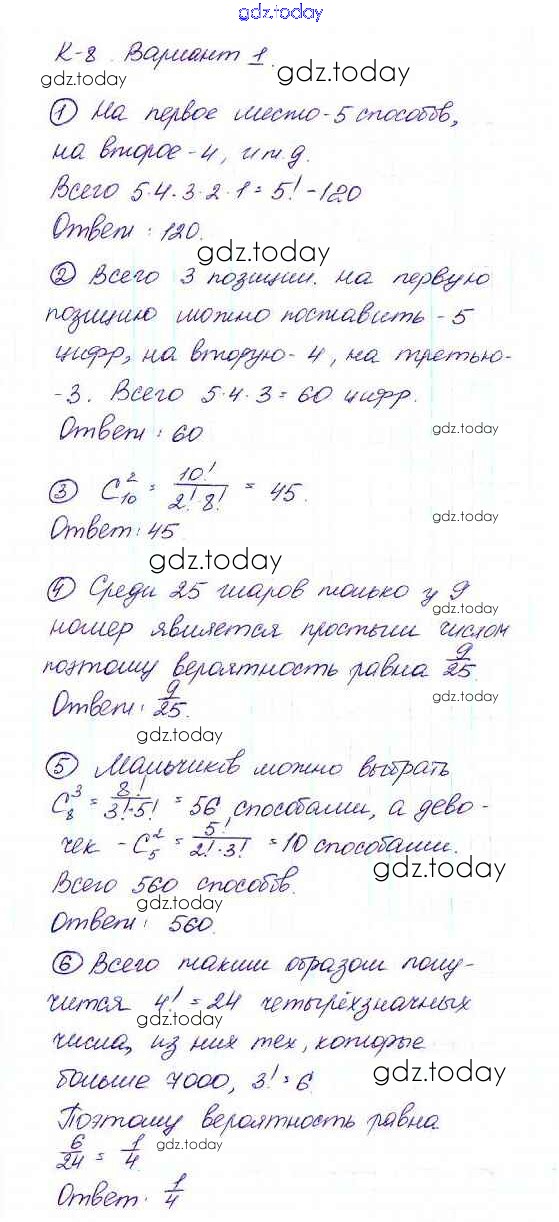 gdz.today
К-8. Вариант 1.
gdz.today gdz.today
① На первое место - 5 способов,
на второе - 4, и т.д.
Всего 5·4·3·2·1 = 5! - 120
Ответ: 120.
gdz.today
② Всего 3 позиции. на первую
позицию можно поставить - 5
цифр, на вторую - 4, на третью -
- 3. Всего 5·4·3 = 60 цифр.
Ответ: 60
gdz.today
③ C₁₀² = 10!/(2!·8!) = 45.
gdz.today
Ответ: 45
gdz.today
④ Среди 25 шаров только у 9
gdz.today
номер является простым числом
поэтому вероятность равна 9/25.
gdz.today
Ответ: 9/25.
gdz.today
⑤ Мальчиков можно выбрать
C₈³ = 8!/(3!·5!) = 56 способами, а дево-
чек - C₅² = 5!/(2!·3!) = 10 способами.
gdz.today
Всего 560 способов.
gdz.today
Ответ: 560.
⑥ Всего таким образом полу-
чится 4! = 24 четырёхзначных
gdz.today
числа, из них тех, которые
больше 7000, 3! = 6.
gdz.today
Поэтому вероятность равна
6/24 = 1/4
gdz.today
Ответ: 1/4